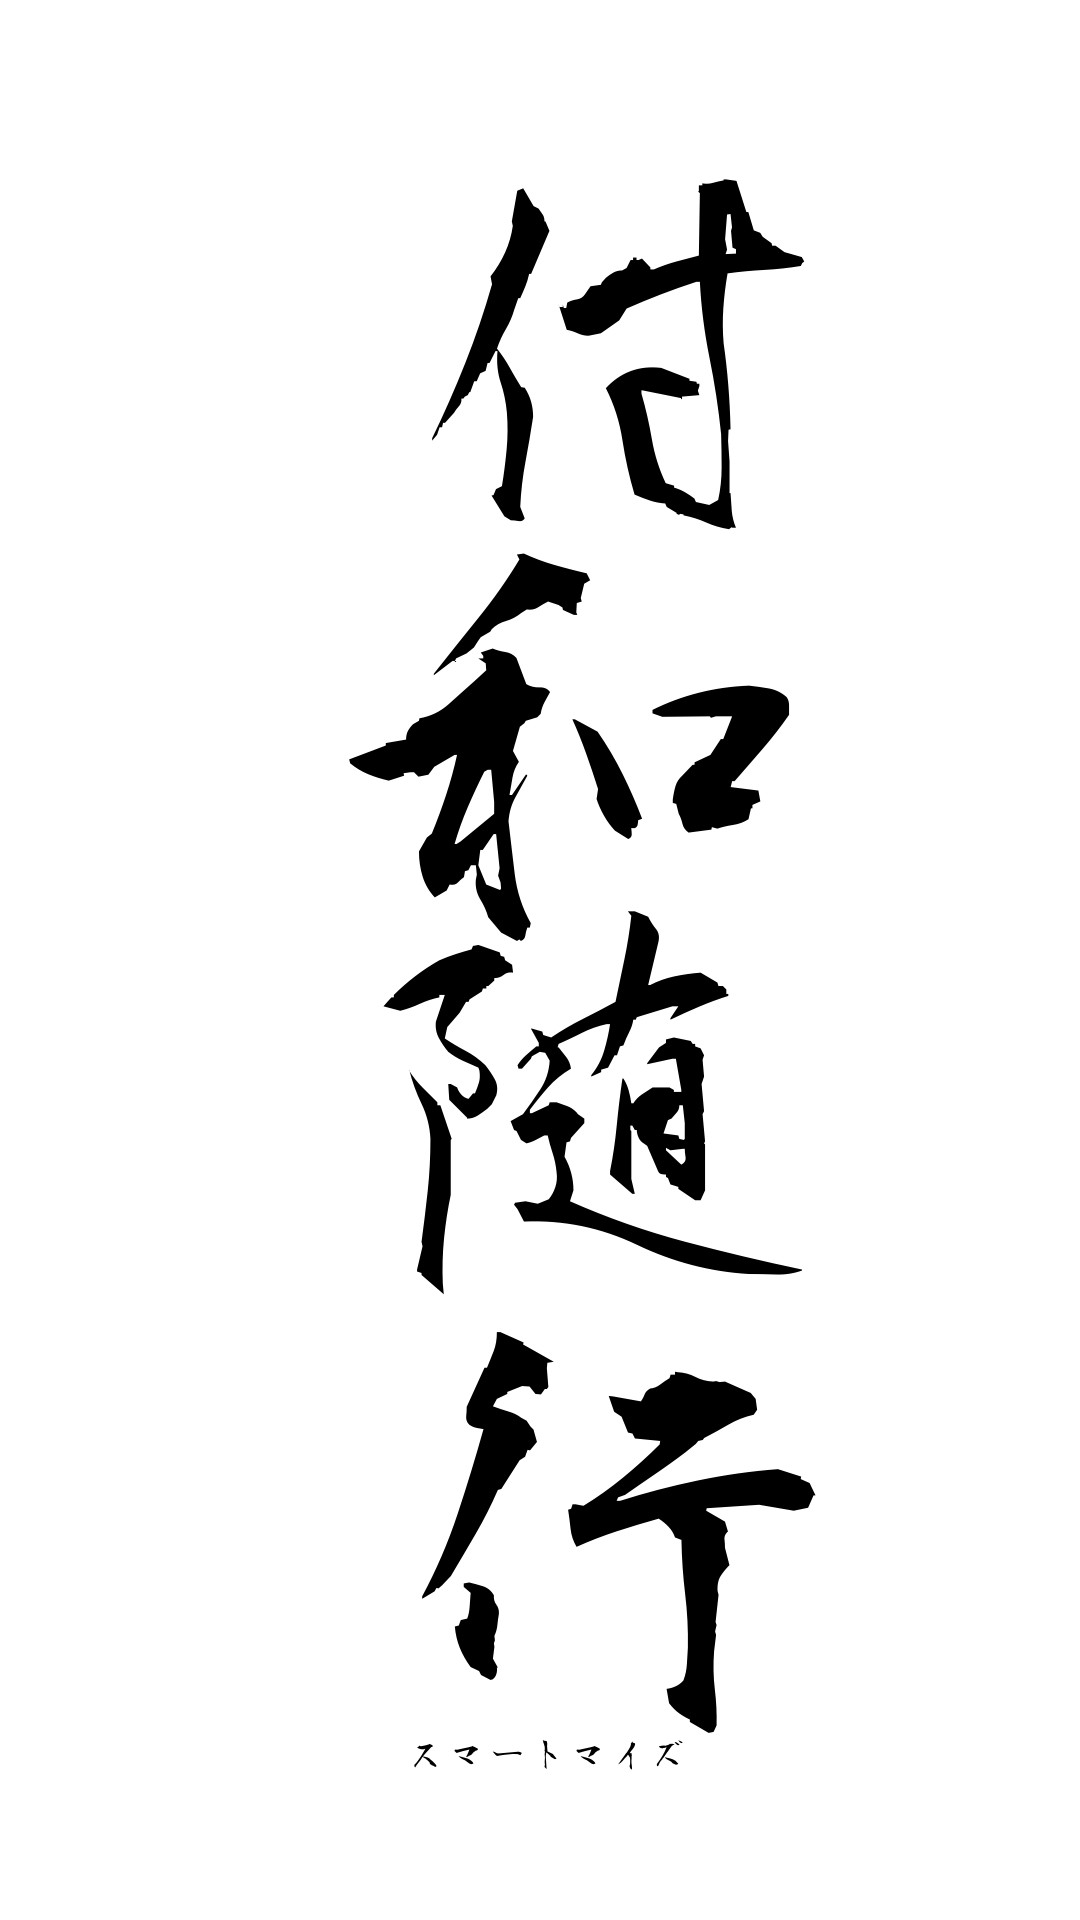 付和随行
スマートマイズ